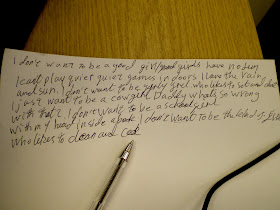 I don't want to be a good girl good girls have no fun
I cant play quiet quiet games in doors I love the rain
and sun. I don't want to be girly girl who likes to
I just want to be a cowgirl Daddy whats so wrong
with that? I don't want to be a schoolgirl
with my head inside a book I don't want to be the kind of
who likes to clean and cook